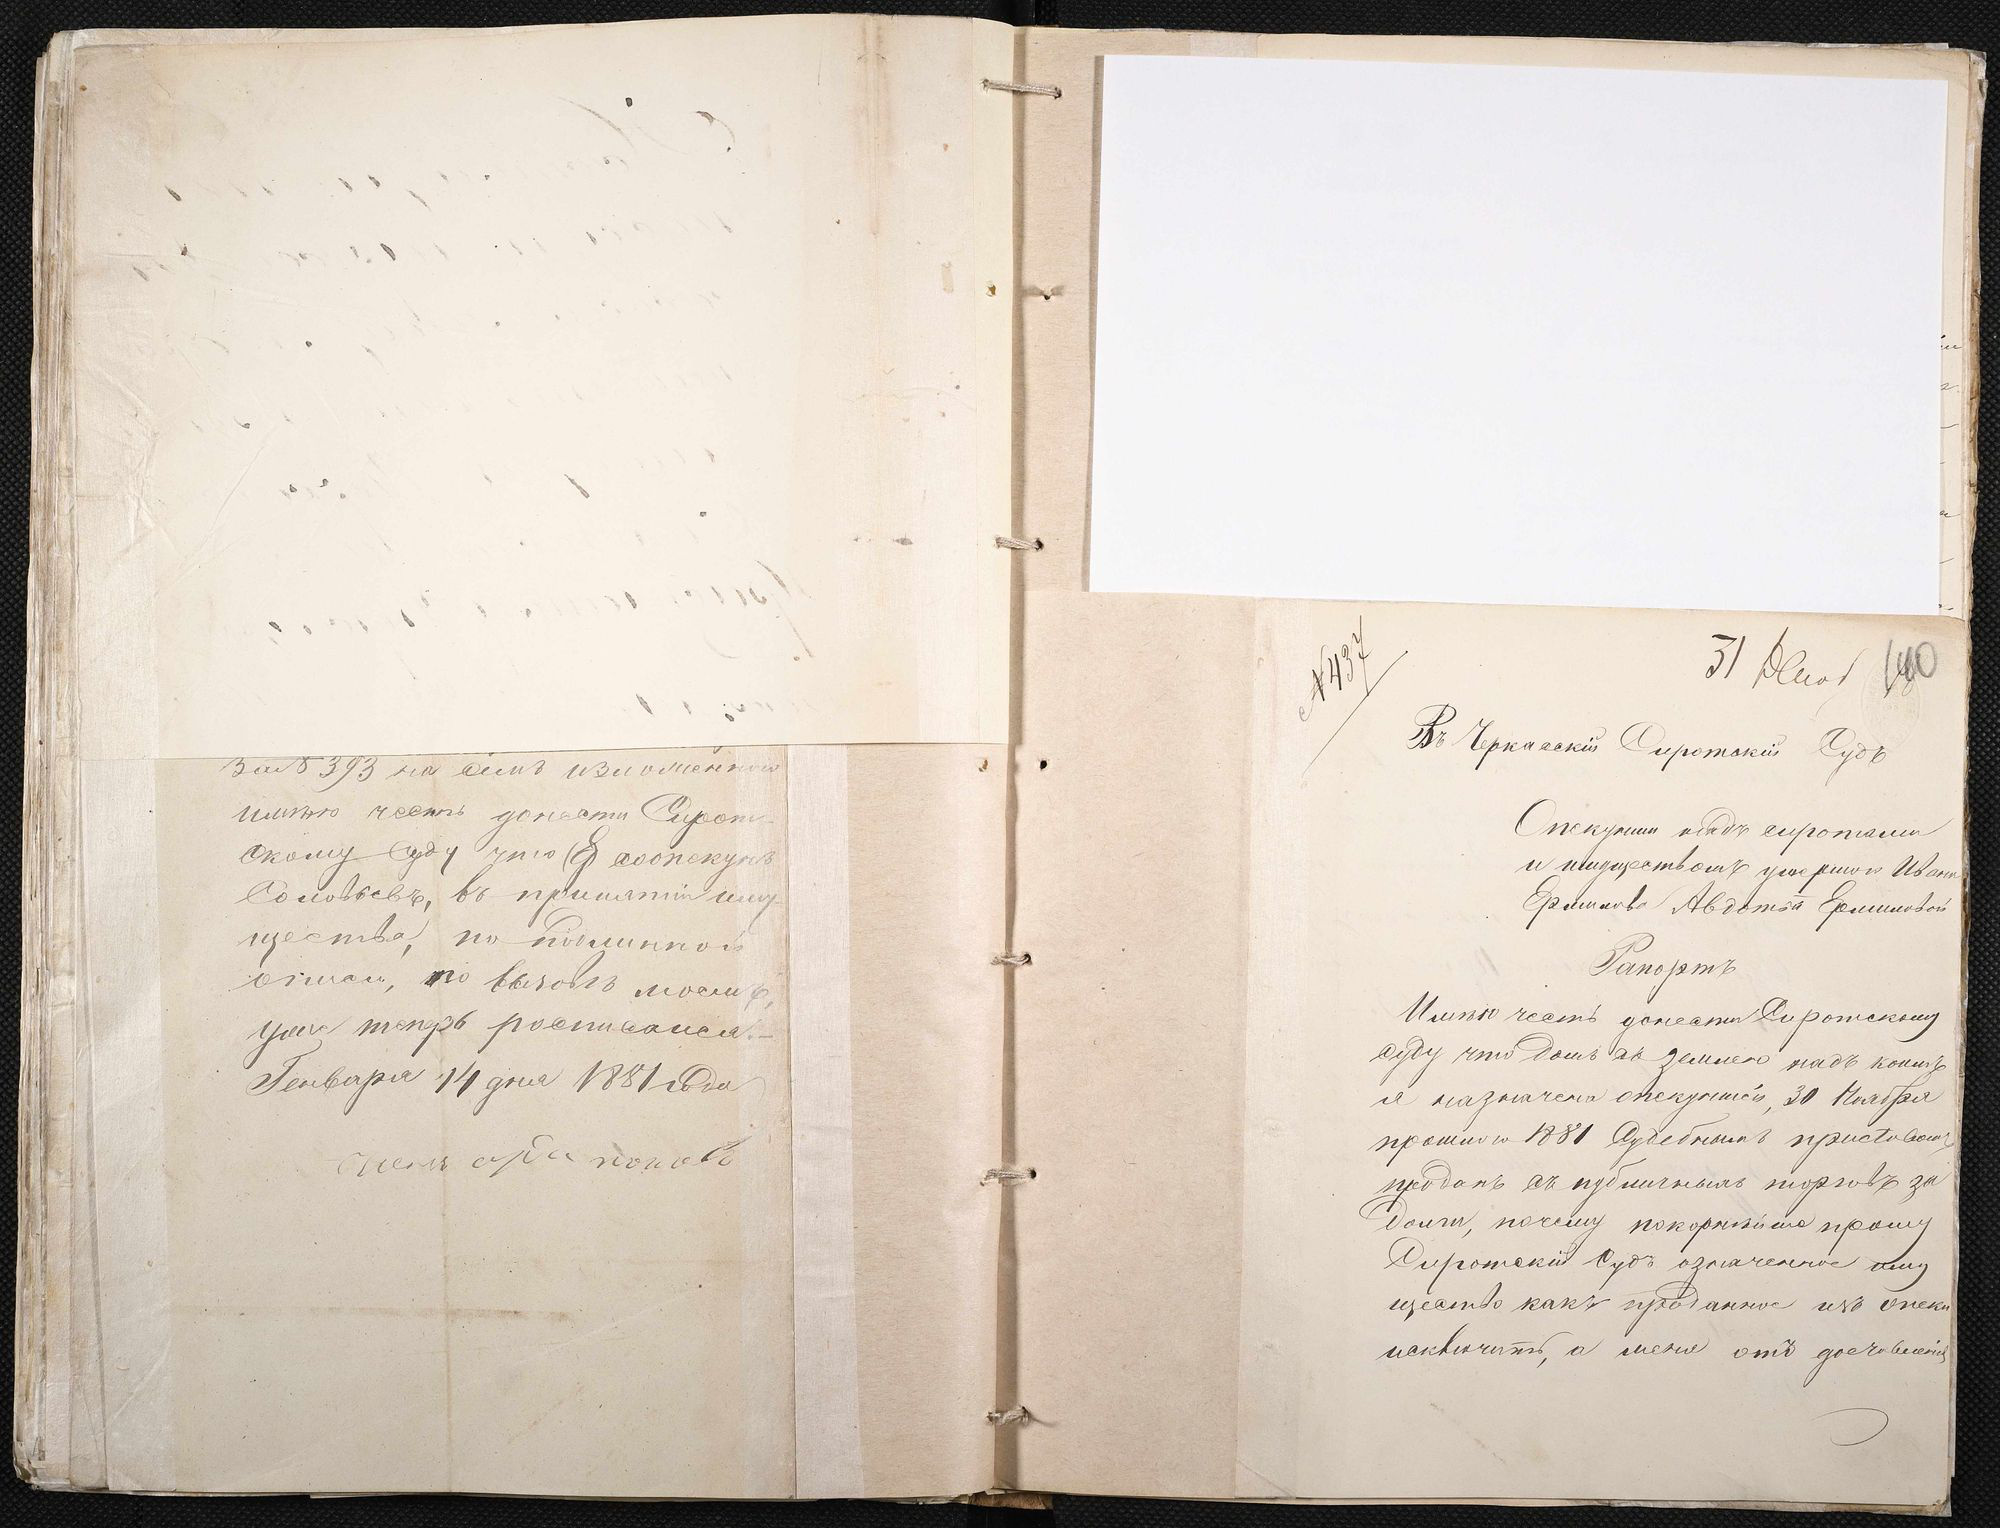 за № 393 на семъ изложенного
имею честь донести Сирот-
скому Суду что соопекунъ
Соловьевъ, въ принятіи иму
щества, по
описи, по вызовъ моему,
уже теперь росписался.
Генваря 14 дня 1881 года
№ 437
31
140
Въ Черкаскій Сиротскій Судъ
Опекунши надъ сиротами
и имуществомъ умершаго Ивана
Ермилова Авдотьи Ермиловой
Рапортъ
Имѣю честь донести Сиротскому
Суду что домъ съ землею надъ коимъ
я назначена опекуншей, 30 Ноября
прошлаго 1881 Судебнымъ приставомъ
проданъ съ публичныхъ торговъ за
долги, почему покорнѣйше прошу
Сиротскій Судъ означенное иму
щество какъ проданное изъ опеки
исключить, а меня отъ доставленія